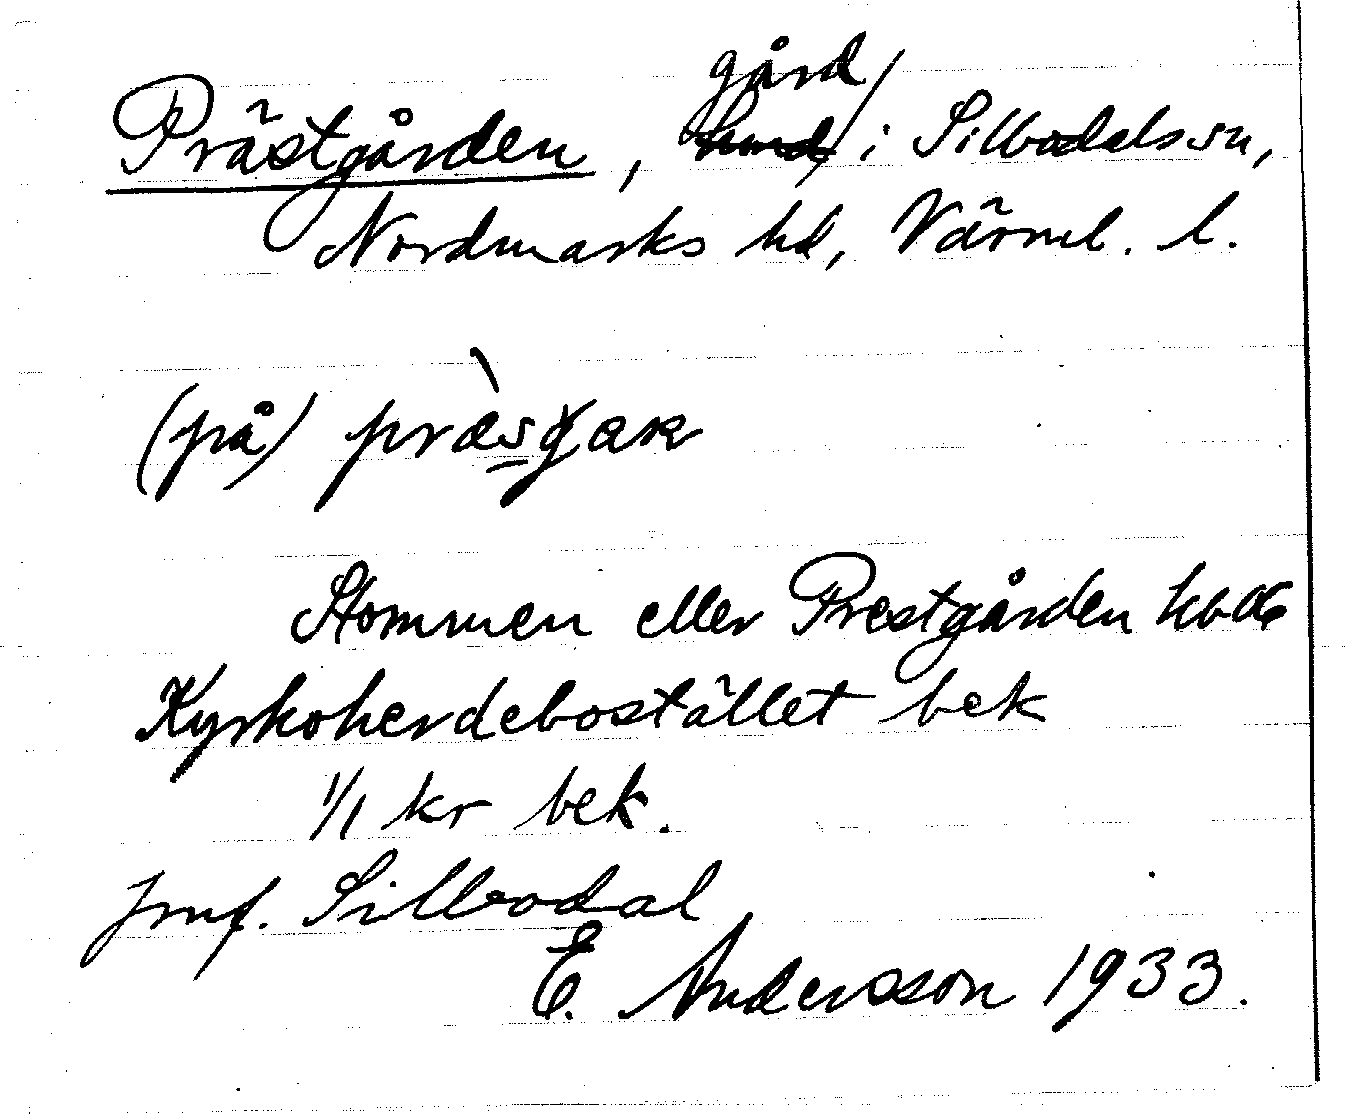 Prästgården, gård i Silbodals sn,
Nordmarks hd, Värml. l.
(på)
Stommen eller Prestgården
Kyrkoherdebostället bek
1/1 kr bek.
Jmf. Silbodal
E. Andersson 1933.